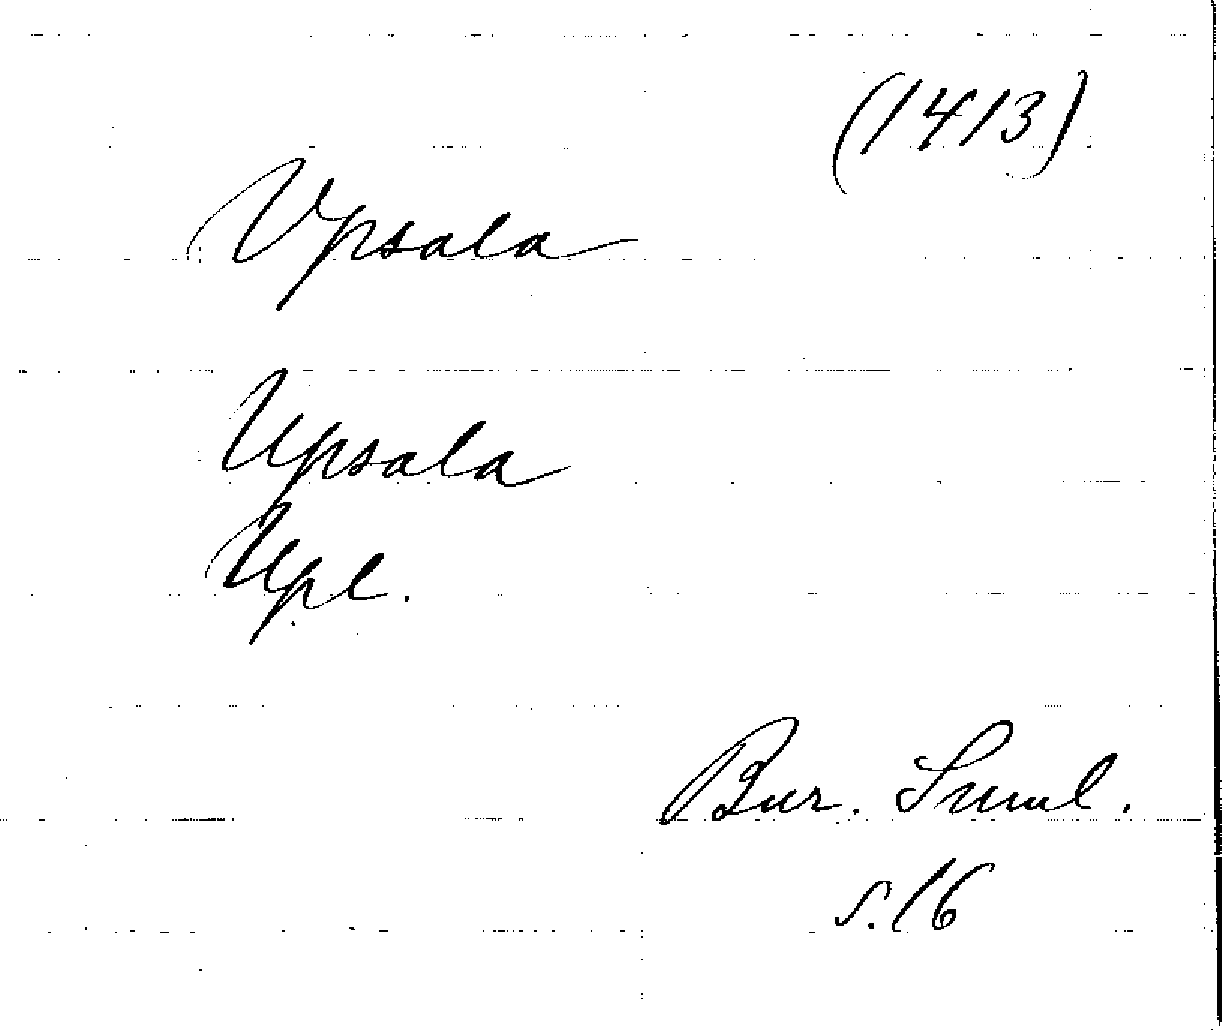 (1413)
Vpsala
Upsala
Upl.
Bur. Suml.
s. 16